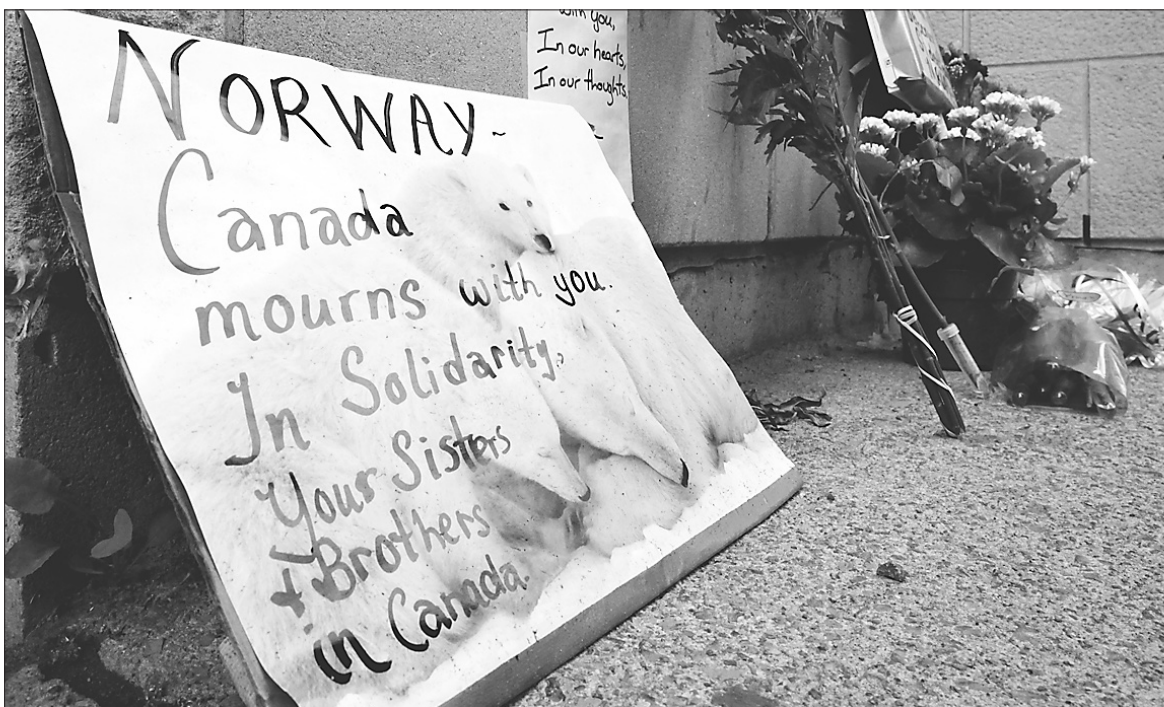 NORWAY~
Canada
mourns with you.
In Solidarity,
Your Sisters
+ Brothers
in Canada.
with you,
In our hearts,
In our thoughts.